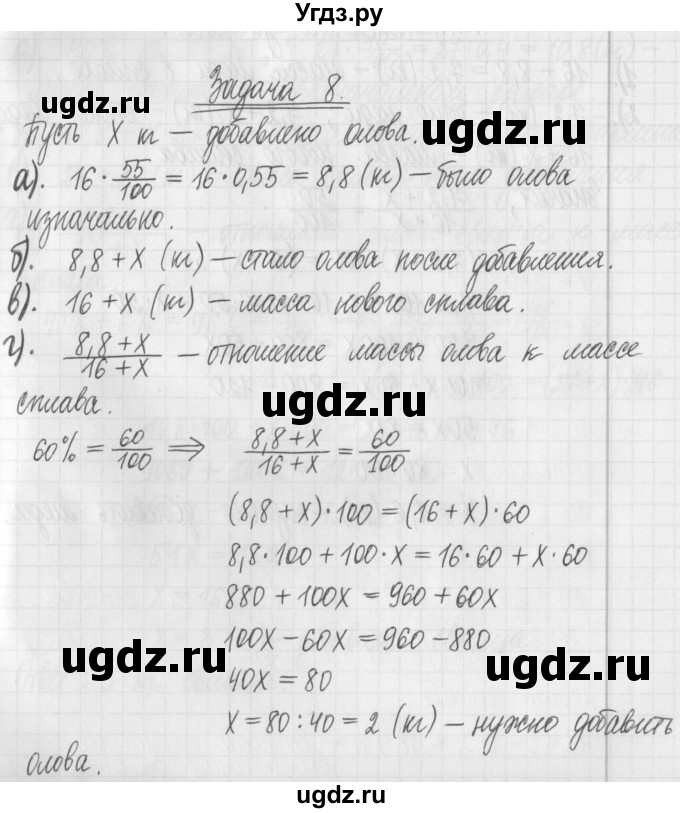 Угдз.ру
Задача 8.
Пусть X кг – добавлено олова.
а). 16 · 55/100 = 16 · 0,55 = 8,8 (кг) – было олова
изначально.
б). 8,8 + X (кг) – стало олова после добавления.
в). 16 + X (кг) – масса нового сплава.
г). 8,8 + X / 16 + X – отношение массы олова к массе
сплава.
60% = 60/100 ⇒ 8,8 + X / 16 + X = 60/100
(8,8 + X) · 100 = (16 + X) · 60
8,8 · 100 + 100 · X = 16 · 60 + X · 60
880 + 100X = 960 + 60X
100X – 60X = 960 – 880
40X = 80
X = 80 : 40 = 2 (кг) – нужно добавить
олова.
ugdz.ru
ugdz.ru
ugdz.ru
ugdz.ru
ugdz.ru
ugdz.ru